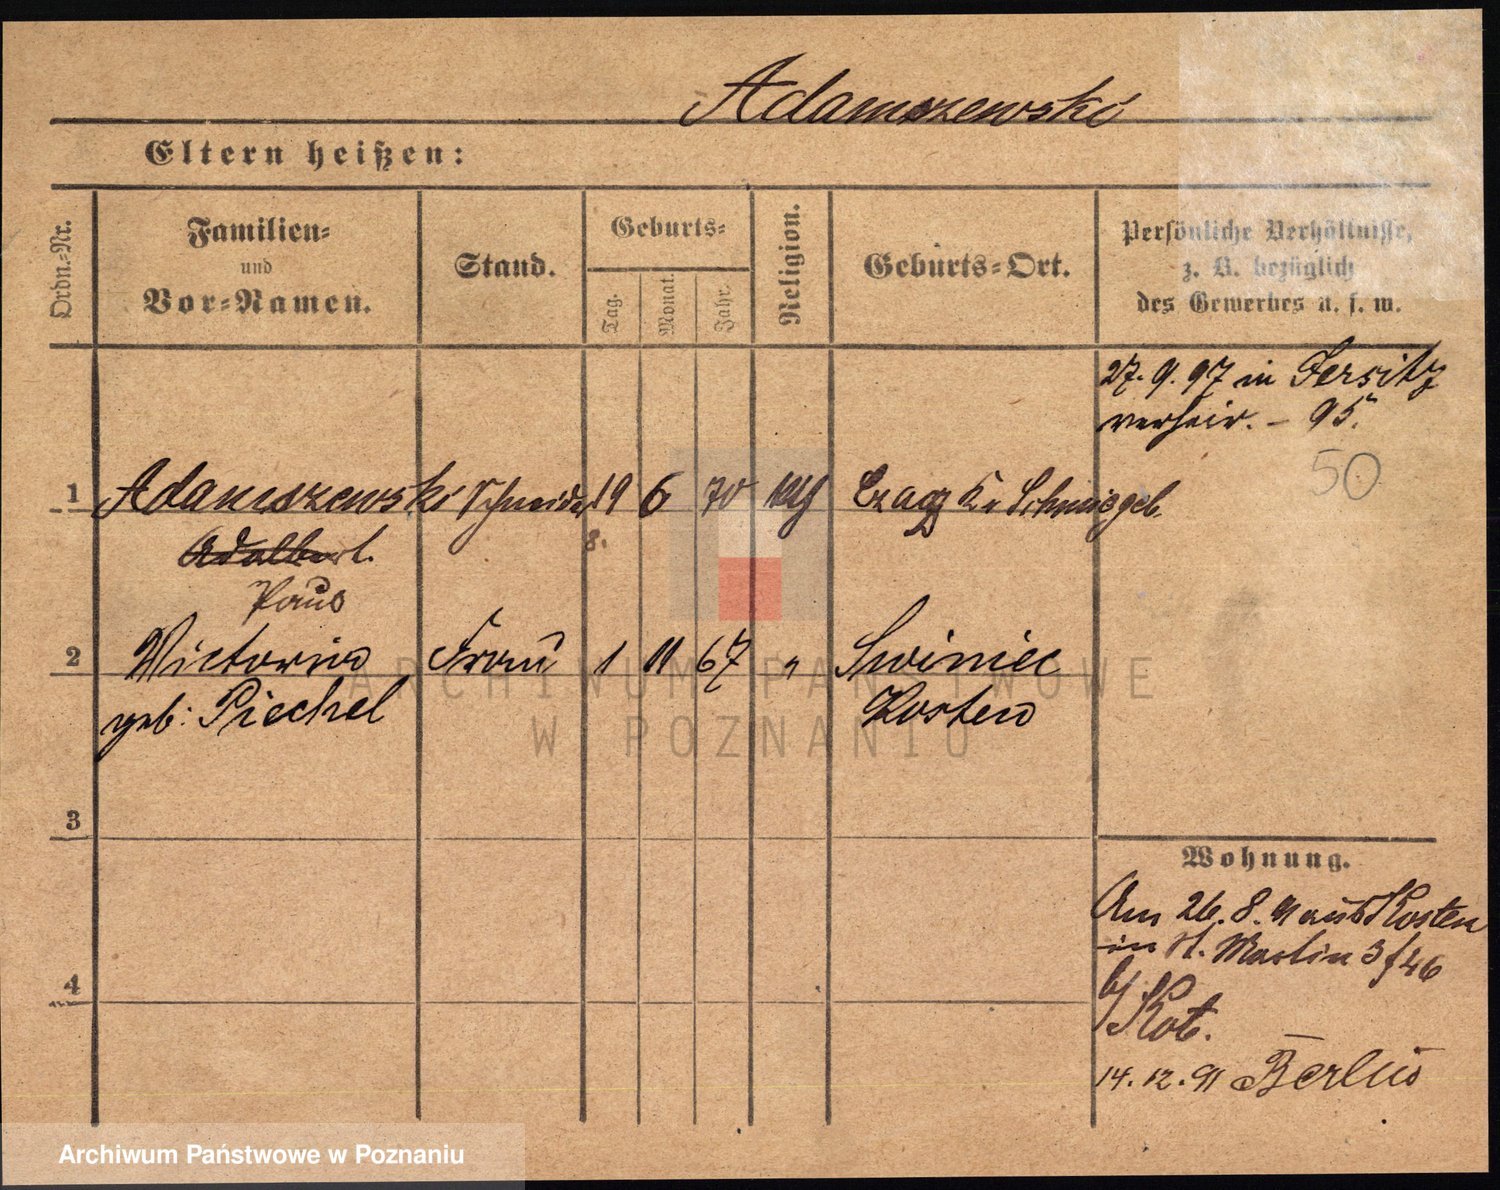 Adamszewski
Eltern heißen:
Ordn.-Nr.
Familien-
und
Vor-Namen.
Stand.
Geburts-
Tag.
Monat.
Jahr.
Religion.
Geburts-Ort.
Persönliche Verhältnisse,
z. B. bezüglich
des Gewerbes u. s. w.
27. 9. 97 in Jersitz
verheir. - 95.
50
1 Adamszewski Schneider 19 6 70 Czacz Kr. Schmiegel.
Adalbert. 8.
2 Victoria Frau 1 11 67 " Swiniec
geb: Piechel Kosten
3
Wohnung.
Am 26. 8. 91 aus Kosten
in St. Martin 3/46
4
b/ Kot.
14. 12. 91 Berlin
ARCHIWUM PAŃSTWOWE
W POZNANIU
Archiwum Państwowe w Poznaniu